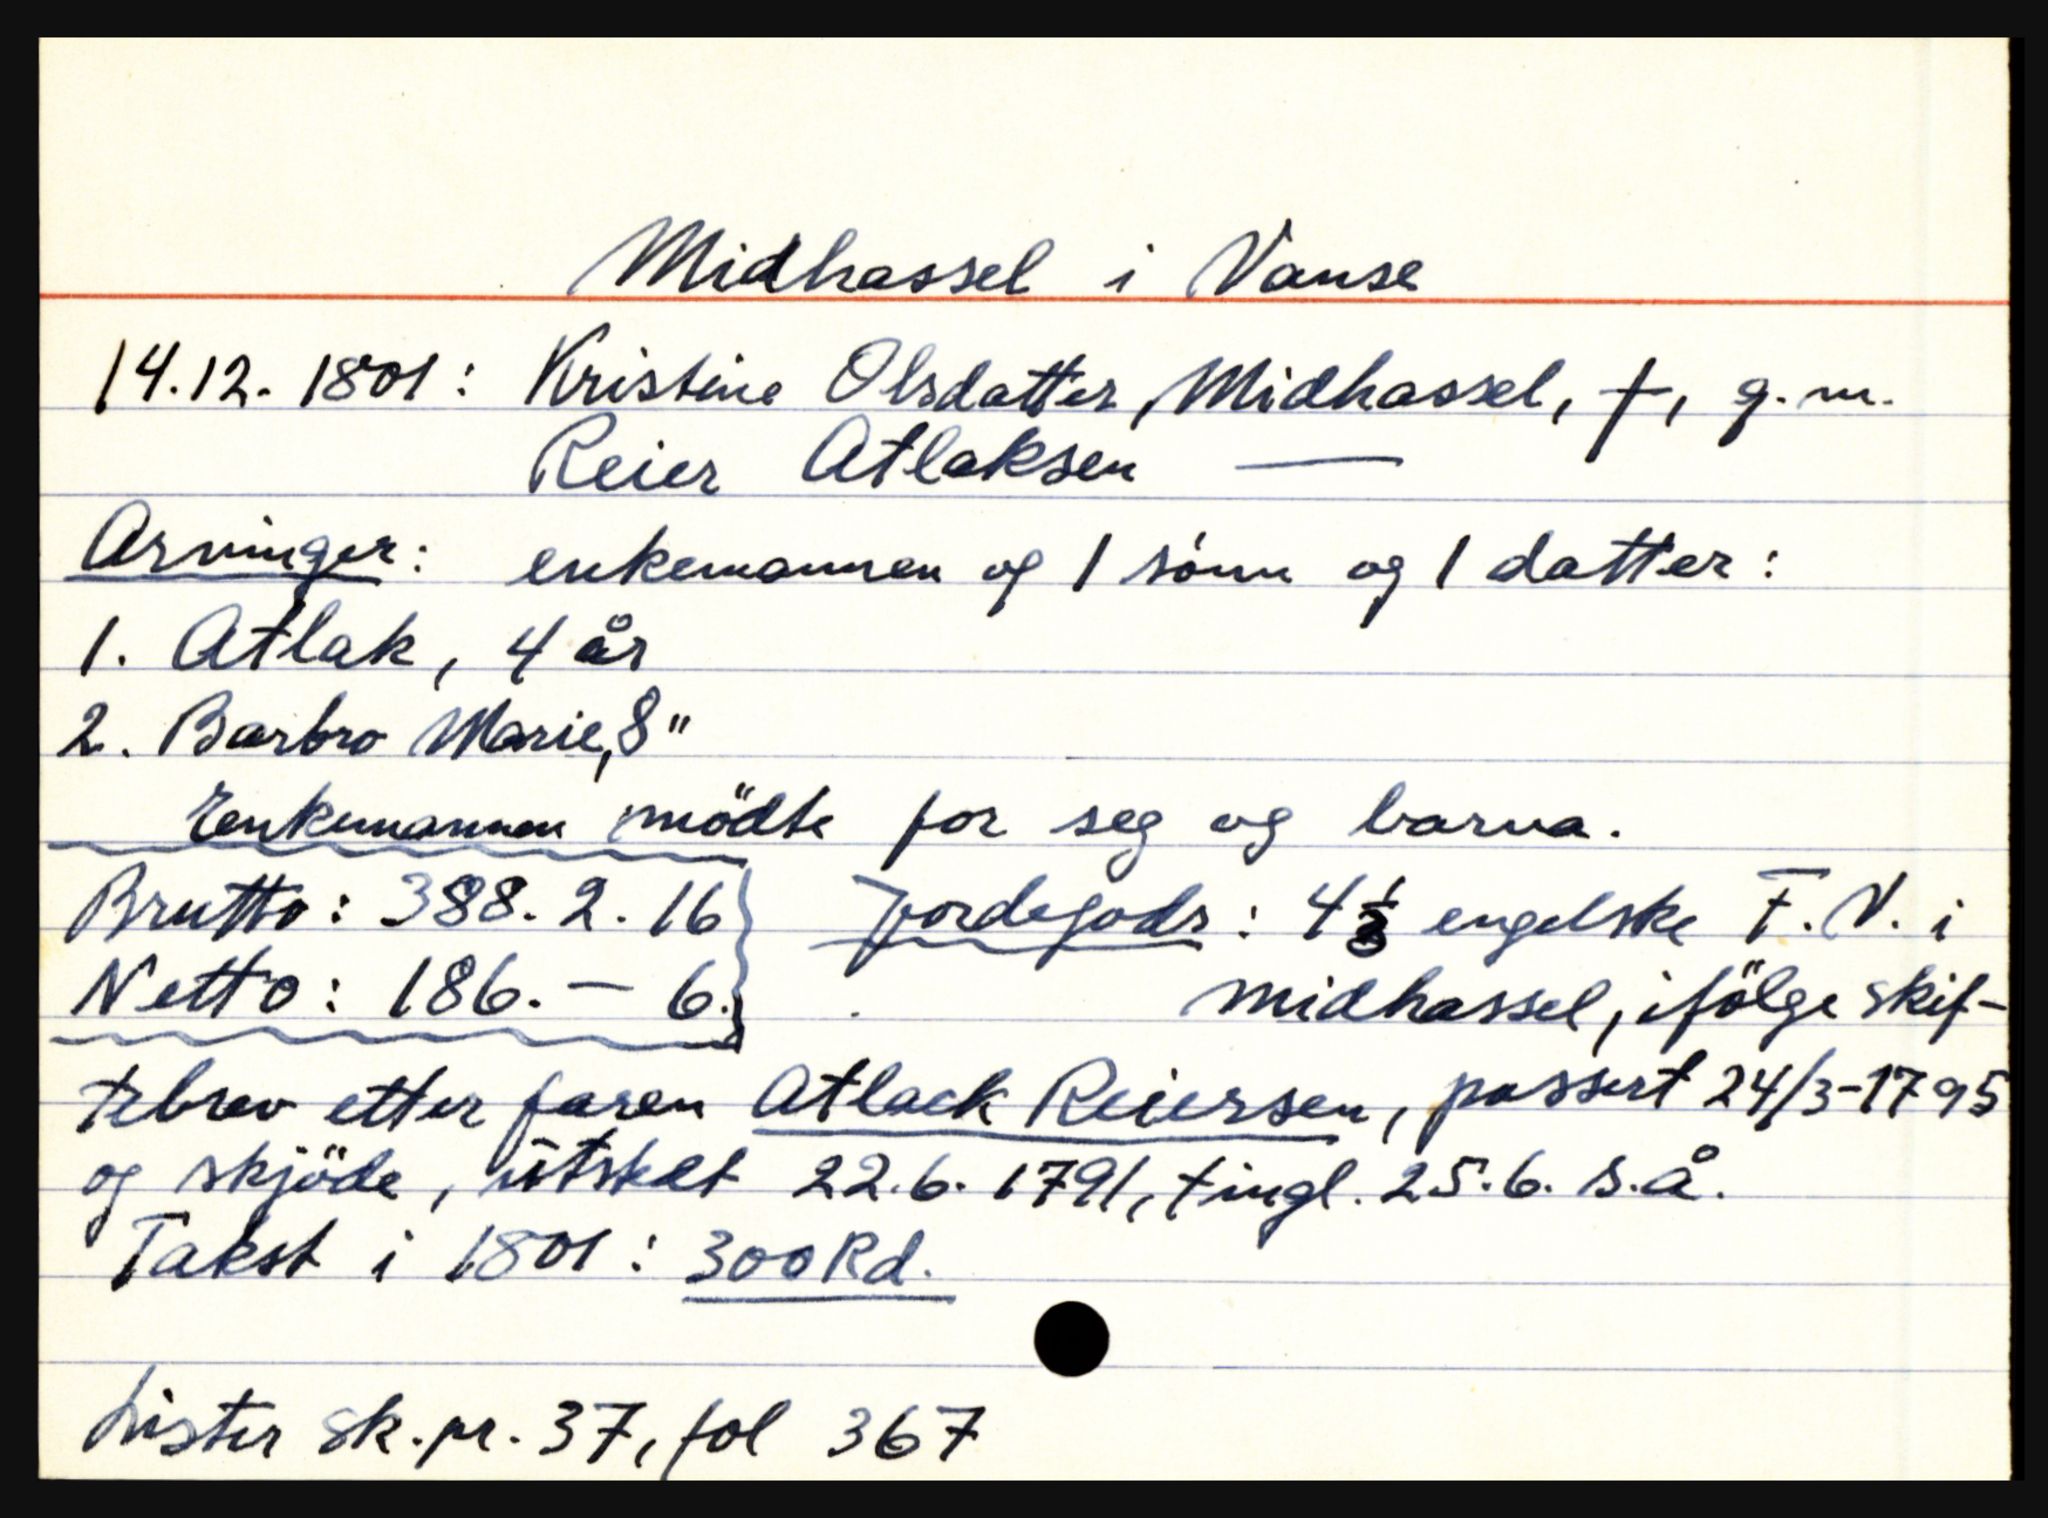 Midhassel i Vanse
14.12. 1801: Kristine Olsdatter, Midhassel, †, g.m.
Reier Atlaksen —
Arvinger: enkemannen og 1 sönn og 1 datter:
1. Atlak, 4 år
2. Barbro Marie, 8 "
Enkemannen mödte for seg og barna.
Brutto: 388. 2. 16 Jordegods: 4 engelske F. V. i
Netto: 186. — 6. Midhassel, ifölge skif-
tebrev etter faren Atlack Reiersen, passert 24/3-1795
og skjöde, utstedt 22.6. 1791, tingl. 25.6. s.å.
Takst i 1801: 300 Rd.
Lister sk.pr. 37, fol 367